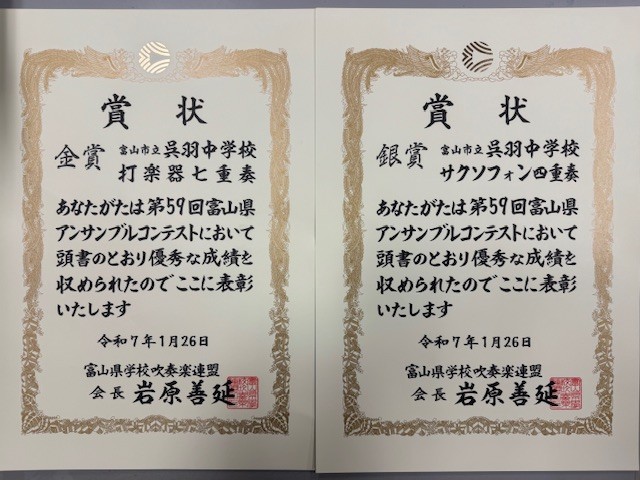 賞 状
金賞 富山市立呉羽中学校
打楽器七重奏
あなたがたは第59回富山県
アンサンブルコンテストにおいて
頭書のとおり優秀な成績を
収められたのでここに表彰
いたします
令和7年1月26日
富山県学校吹奏楽連盟
会長 岩原善延
賞 状
銀賞 富山市立呉羽中学校
サクソフォン四重奏
あなたがたは第59回富山県
アンサンブルコンテストにおいて
頭書のとおり優秀な成績を
収められたのでここに表彰
いたします
令和7年1月26日
富山県学校吹奏楽連盟
会長 岩原善延